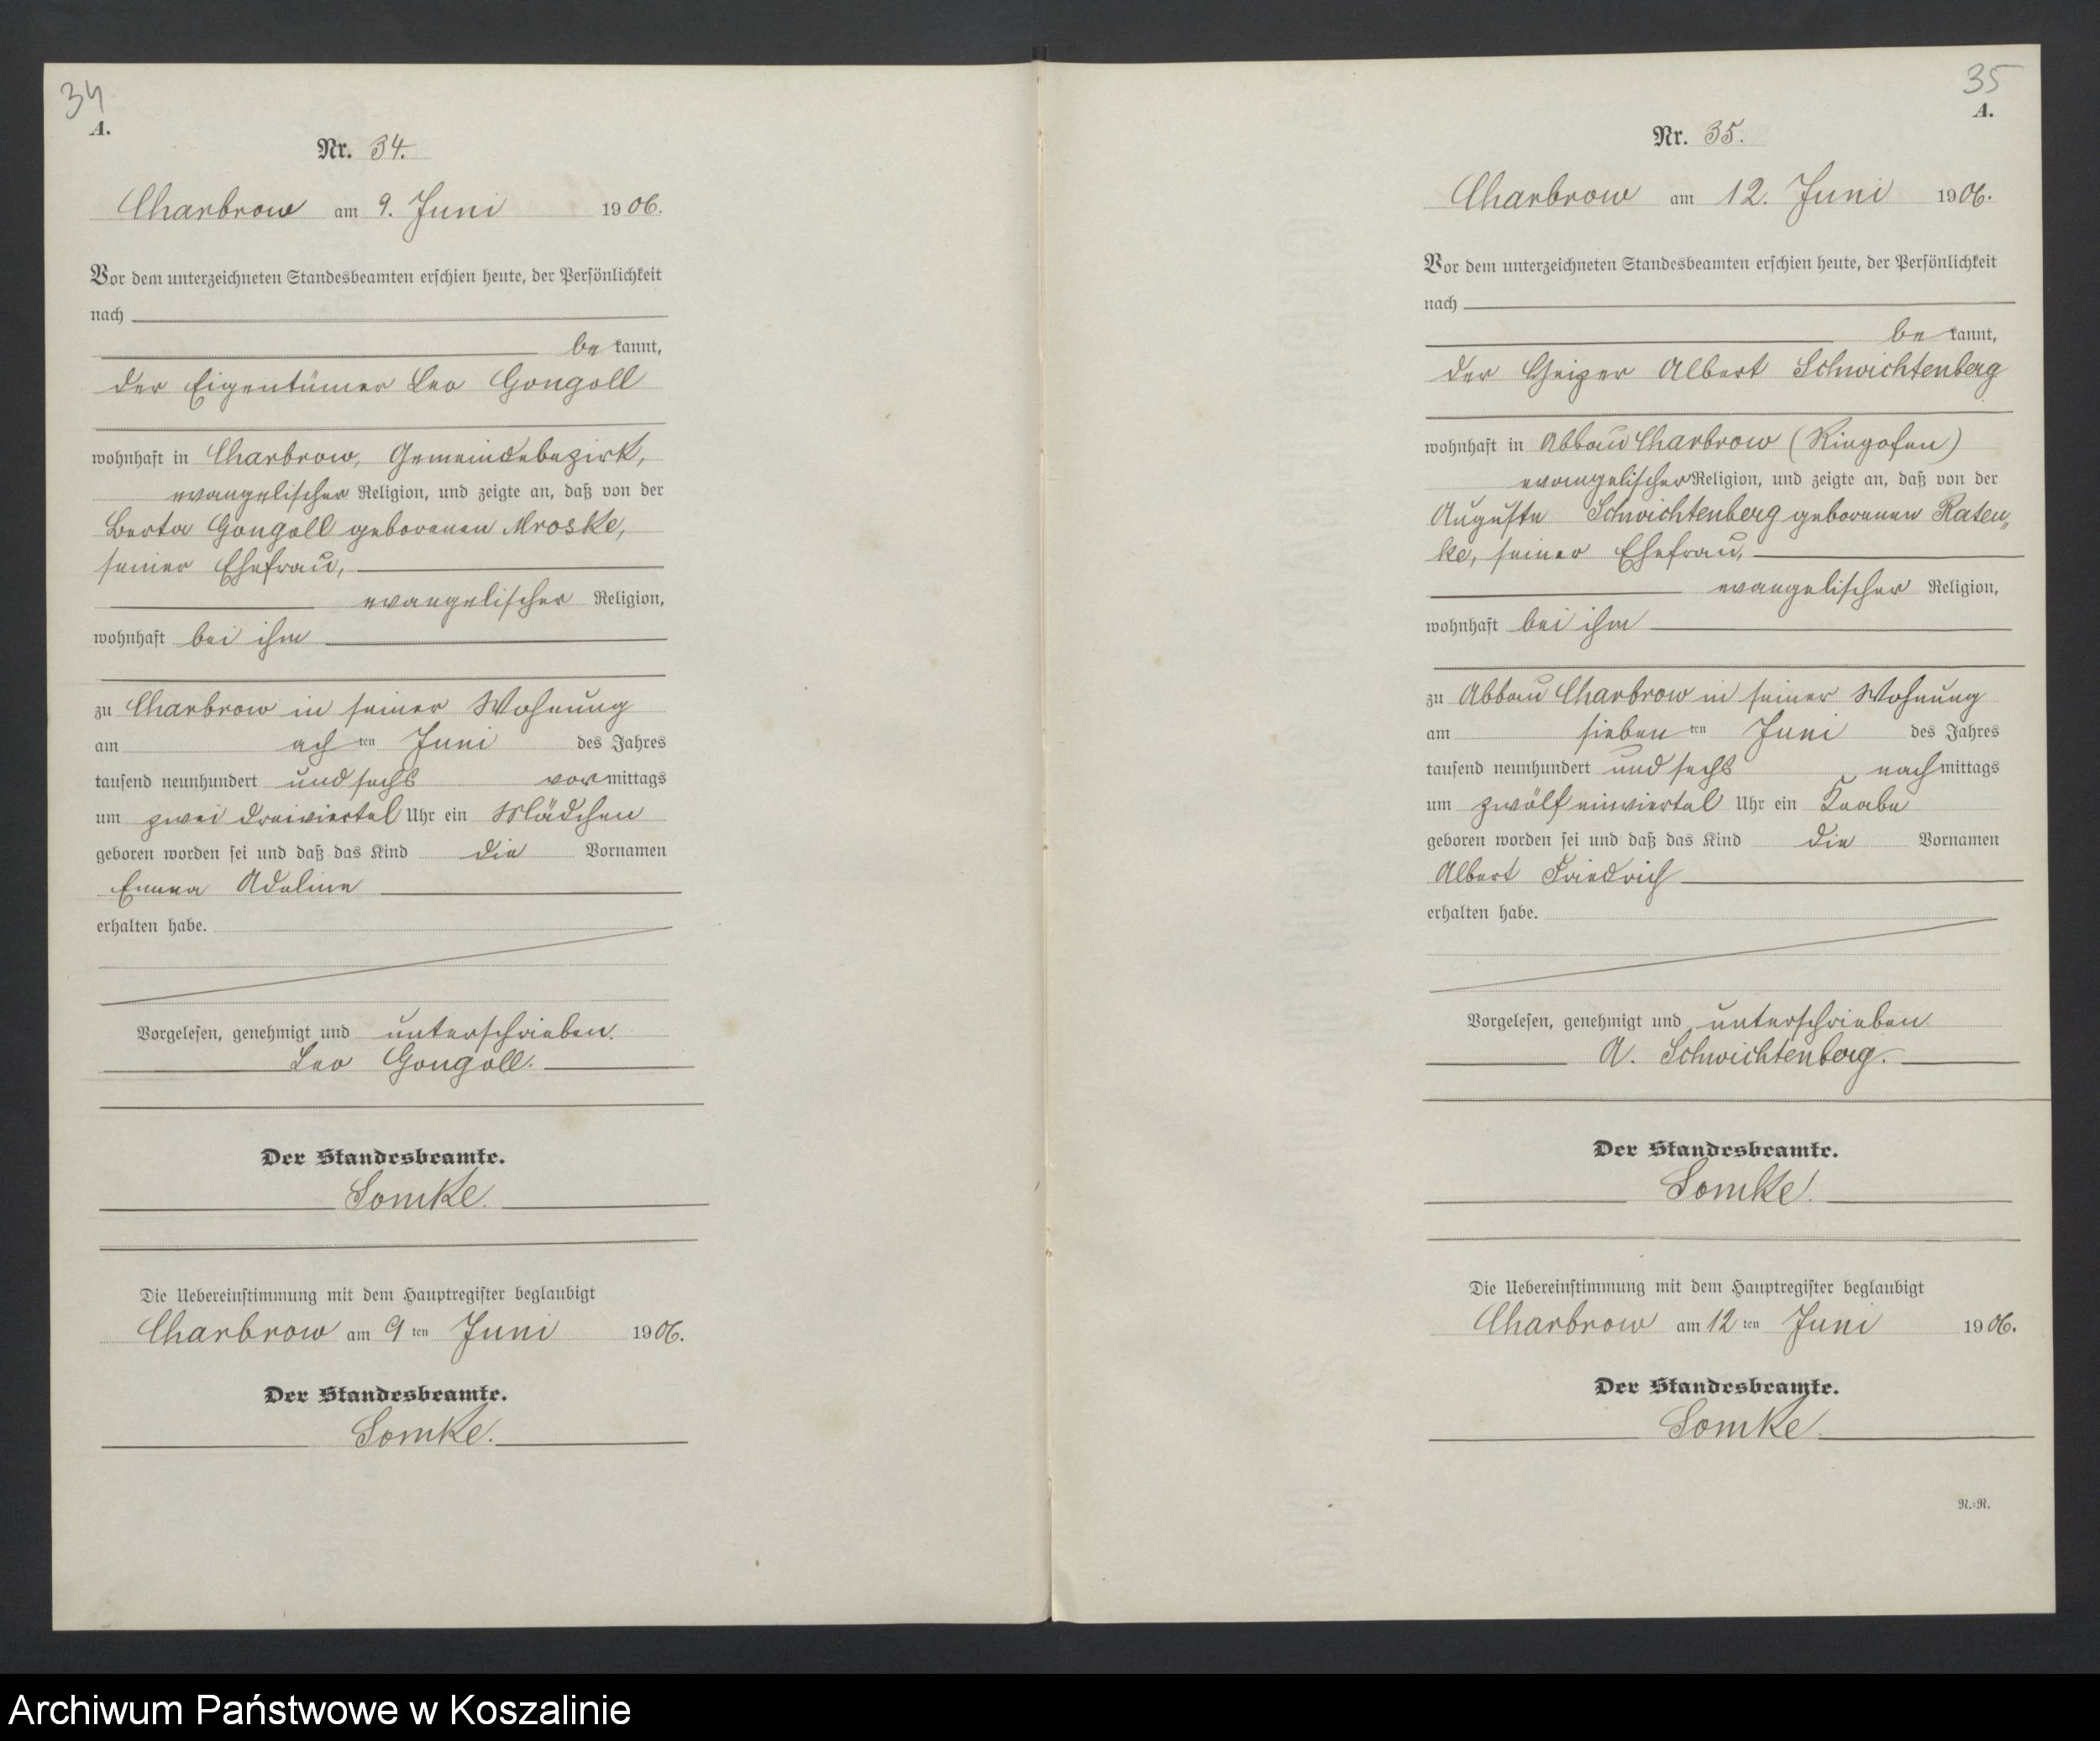 34
A.
Nr. 34.
Charbrow am 9. Juni 1906.
Vor dem unterzeichneten Standesbeamten erschien heute, der Persönlichkeit
nach
bekannt,
der Eigentümer Leo Gongoll
wohnhaft in Charbrow, Gemeindebezirk,
evangelischer Religion, und zeigte an, daß von der
Berta Gongoll geborenen Mroske,
seiner Ehefrau,
evangelischer Religion,
wohnhaft bei ihm
zu Charbrow in seiner Wohnung
am achten Juni des Jahres
tausend neunhundert und sechs vormittags
um zwei dreiviertel Uhr ein Mädchen
geboren worden sei und daß das Kind die Vornamen
Emma Adeline
erhalten habe.
Vorgelesen, genehmigt und unterschrieben.
Leo Gongoll.
Der Standesbeamte.
Somke.
Die Uebereinstimmung mit dem Hauptregister beglaubigt
Charbrow am 9ten Juni 1906.
Der Standesbeamte.
Somke.
35
A.
Nr. 35.
Charbrow am 12. Juni 1906.
Vor dem unterzeichneten Standesbeamten erschien heute, der Persönlichkeit
nach
bekannt,
der Heizer Albert Schwichtenberg
wohnhaft in Abbau Charbrow (Ringofen)
evangelischer Religion, und zeigte an, daß von der
Auguste Schwichtenberg geborenen Raten„
ke, seiner Ehefrau,
evangelischer Religion,
wohnhaft bei ihm
zu Abbau Charbrow in seiner Wohnung
am siebenten Juni des Jahres
tausend neunhundert und sechs nachmittags
um zwölf einviertel Uhr ein Knabe
geboren worden sei und daß das Kind die Vornamen
Albert Friedrich
erhalten habe.
Vorgelesen, genehmigt und unterschrieben
A. Schwichtenberg.
Der Standesbeamte.
Somke.
Die Uebereinstimmung mit dem Hauptregister beglaubigt
Charbrow am 12ten Juni 1906.
Der Standesbeamte.
Somke.
N.=N.
Archiwum Państwowe w Koszalinie